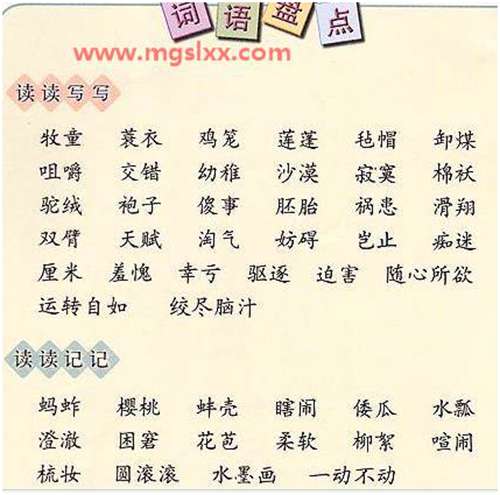 词语盘点
www.mgslxx.com
读读写写
牧童 蓑衣 鸡笼 莲蓬 毡帽 卸煤
咀嚼 交错 幼稚 沙漠 寂寞 棉袄
驼绒 袍子 傻事 胚胎 祸患 滑翔
双臂 天赋 淘气 妨碍 岂止 痴迷
厘米 羞愧 幸亏 驱逐 迫害 随心所欲
运转自如 绞尽脑汁
读读记记
蚂蚱 樱桃 蚌壳 瞎闹 倭瓜 水瓢
澄澈 困窘 花苞 柔软 柳絮 喧闹
梳妆 圆滚滚 水墨画 一动不动